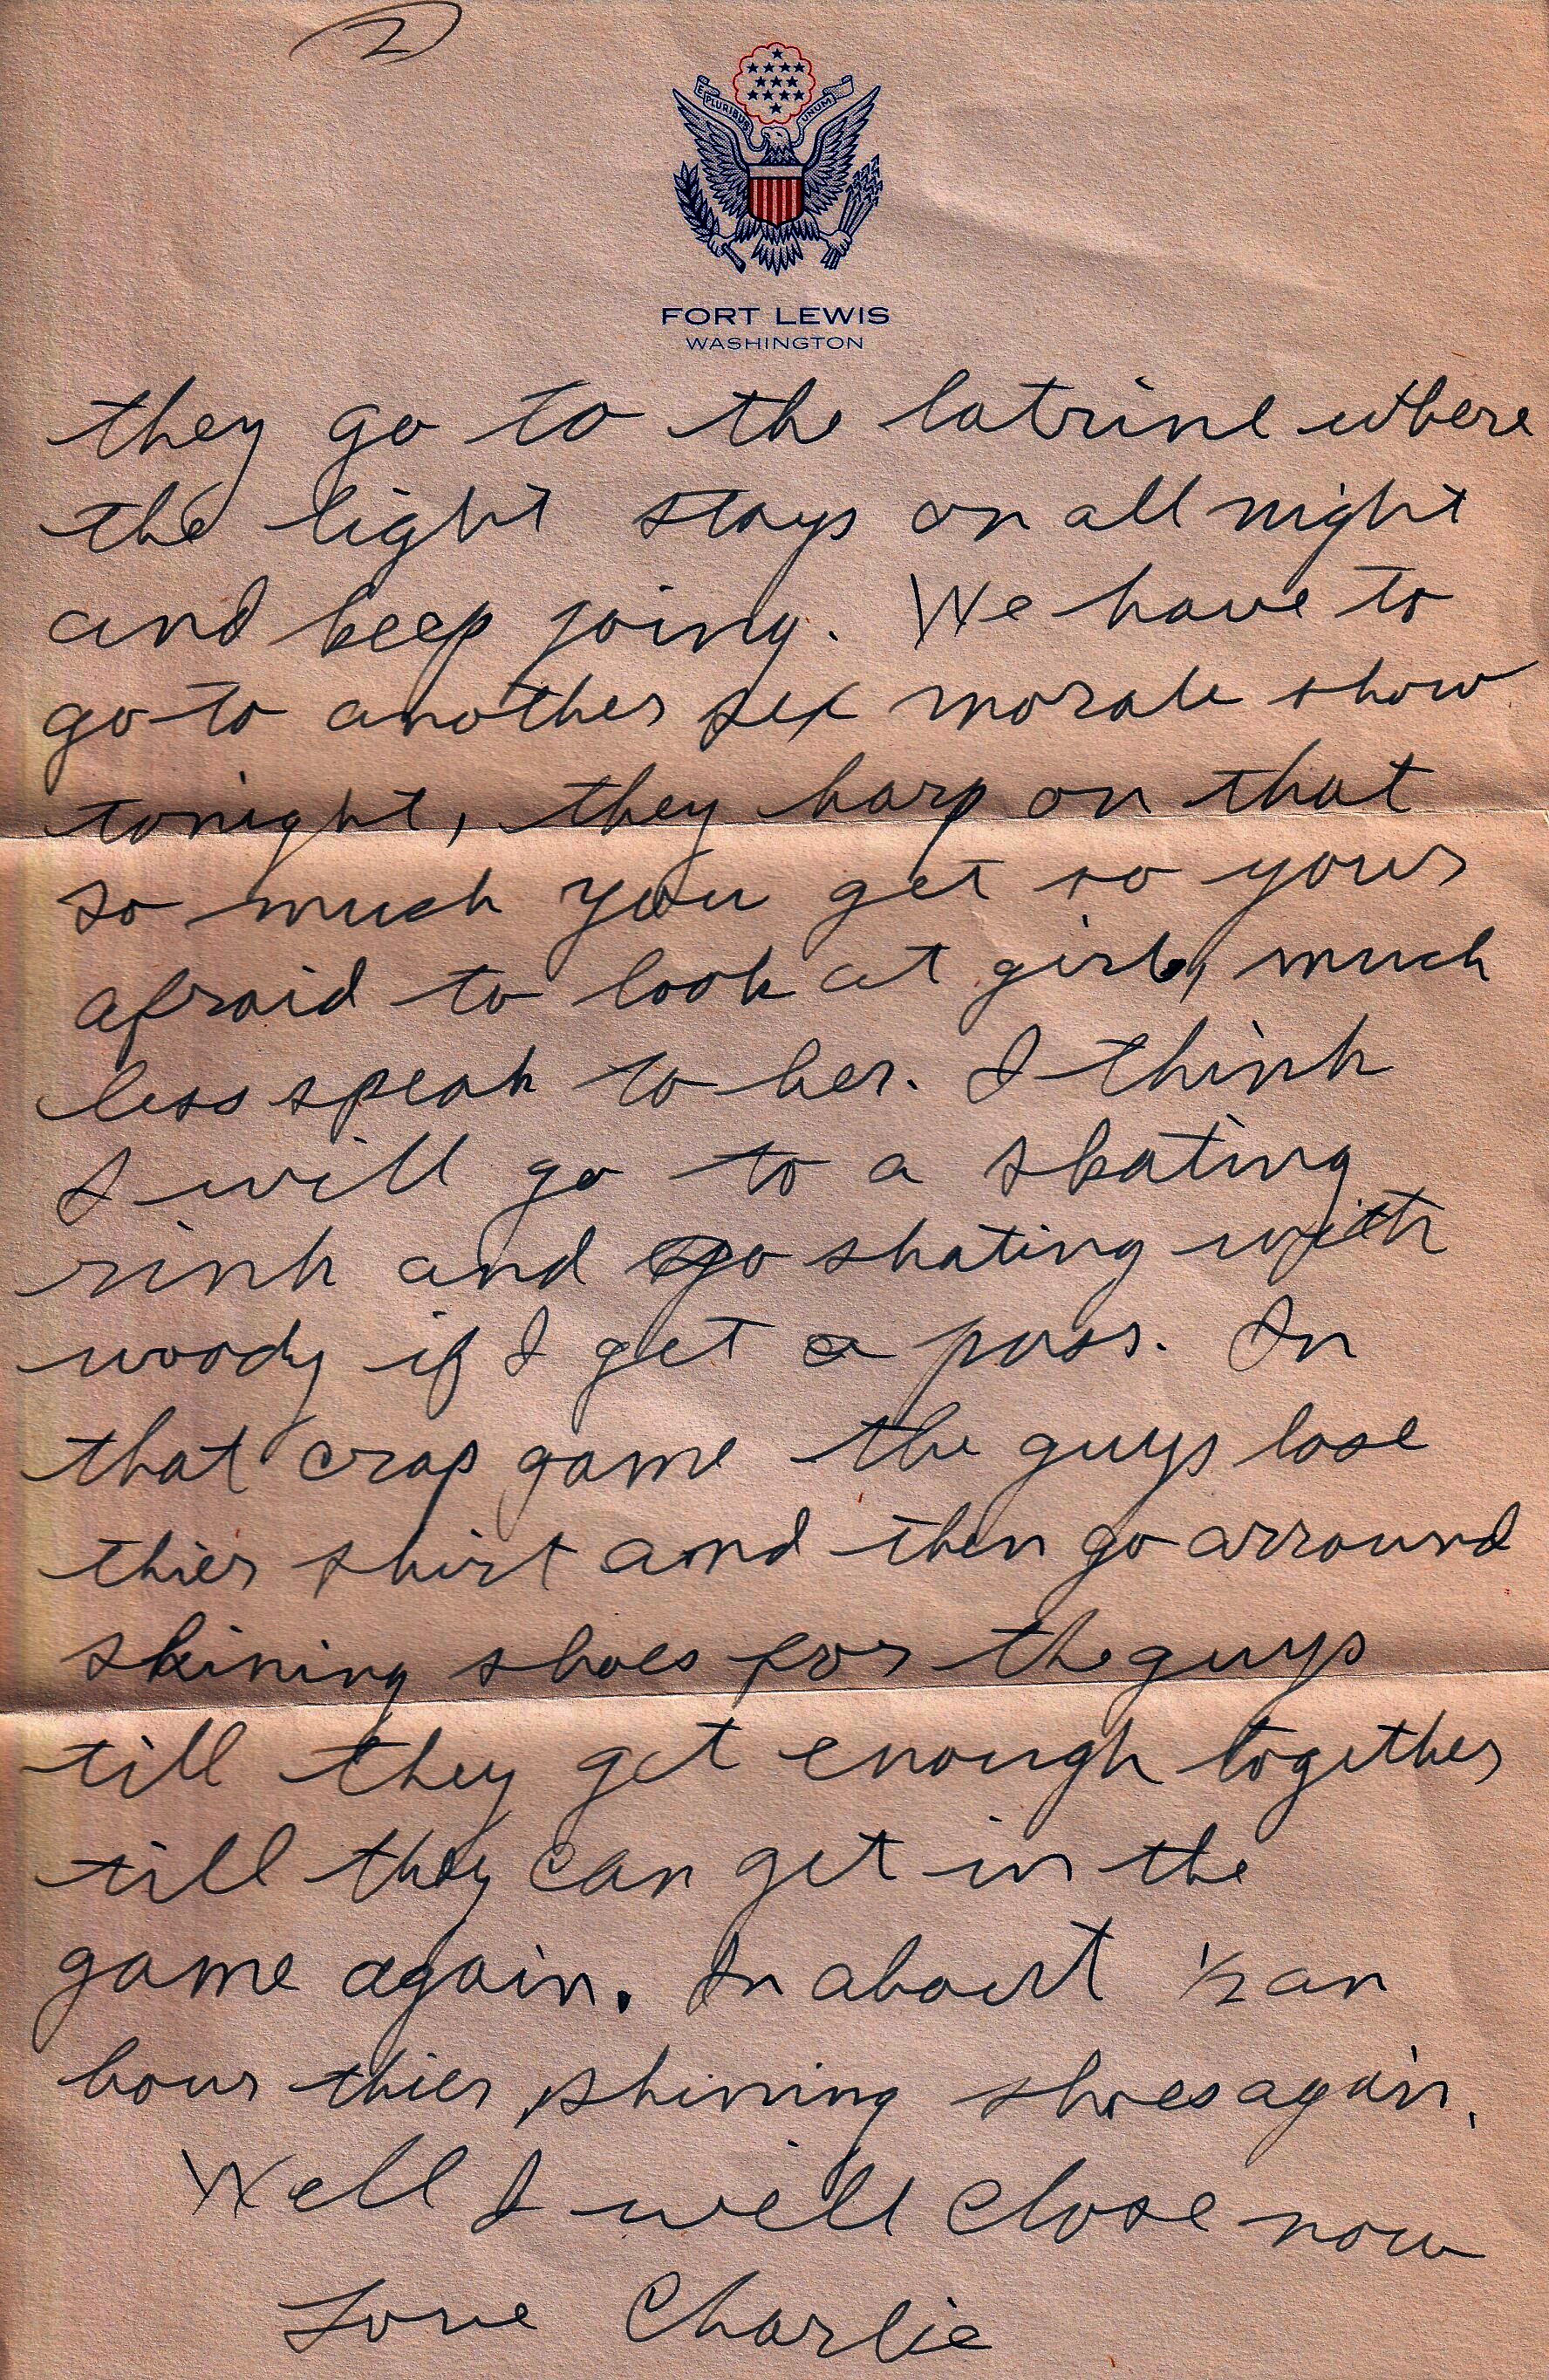 2
E PLURIBUS UNUM
FORT LEWIS
WASHINGTON
they go to the latrine where
the light stays on all night
and keep going. We have to
go to another sex morale show
tonight, they harp on that
so much you get so your
afraid to look at girls, much
less speak to her. I think
I will go to a skating
rink and go skating with
woody if I get a pass. In
that crap game the guys lose
thier shirt and then go arround
shining shoes for the guys
till they get enough together
till they can get in the
game again. In about 1/2 an
hour thier shining shoes again.
Well I will close now
Love Charlie